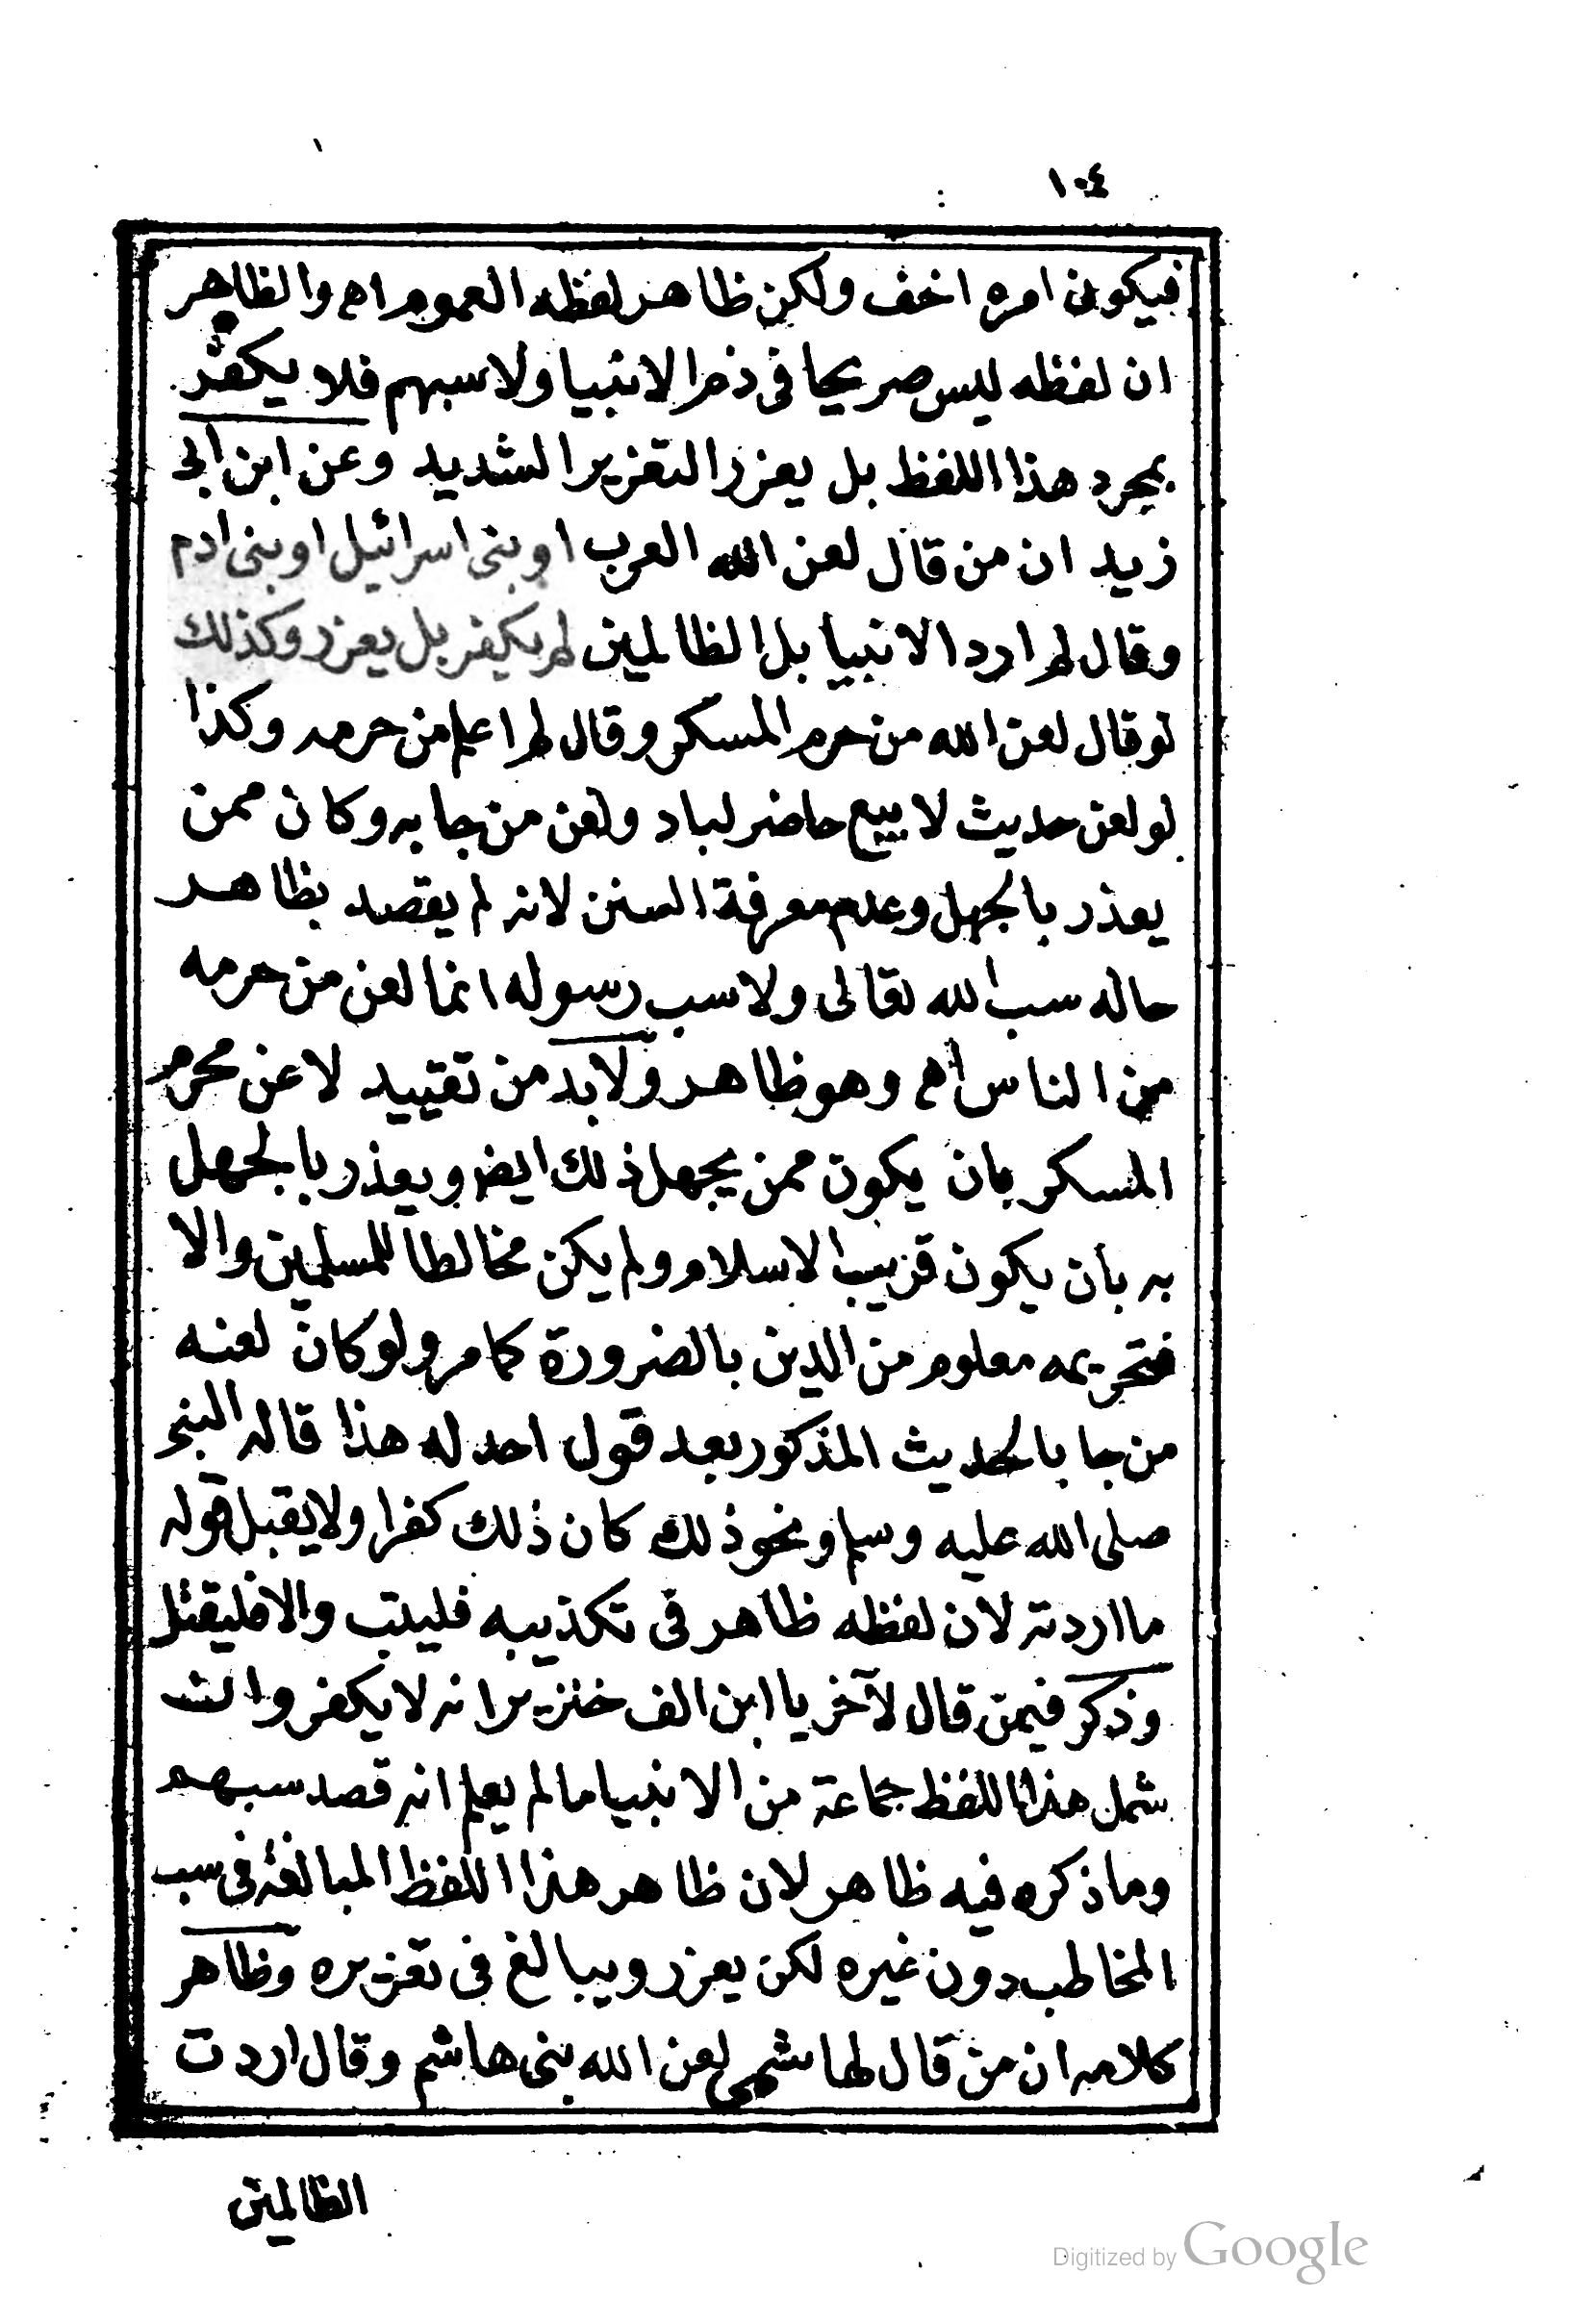 ١٠٤
فيكون امره اخف ولكن ظاهر لفظه العموم اه والظاهر
ان لفظه ليس صريحا فى ذم الانبيا ولا سبهم فلا يكفر
بمجرد هذا اللفظ بل يعزر التعزير الشديد وعن ابن ابى
زيد ان من قال لعن الله العرب او بنى اسرائيل او بنى ادم
وقال لم ارد الانبيا بل الظالمين لم يكفر بل يعزر وكذلك
لو قال لعن الله من حرم المسكر وقال لم اعلم من حرمه وكذا
لو لعن حديث لا يبيع حاضر لباد ولعن من جا به وكان ممن
يعذر بالجهل وعدم معرفة السنن لانه لم يقصد بظاهر
حاله سب الله تعالى ولا سب رسوله انما لعن من حرمه
من الناس اه وهو ظاهر ولا بد من تقييد لاعن محرم
المسكر بان يكون ممن يجهل ذلك ايض ويعذر بالجهل
به بأن يكون قريب الاسلام ولم يكن مخالطا للمسلمين والا
فتحريمه معلوم من الدين بالضرورة كما مر ولو كان لعنه
من جا بالحديث المذكور بعد قول احد له هذا قاله النبى
صلى الله عليه وسلم ونحو ذلك كان ذلك كفرا ولا يقبل قوله
ما اردته لان لفظه ظاهر فى تكذيبه فليتب والا فليقتل
وذكر فيمن قال لآخر يا ابن الف خنزير انه لا يكفر وان
شمل هذا اللفظ جماعة من الانبيا ما لم يعلم انه قصد سبهم
وما ذكره فيه ظاهر لان ظاهر هذا اللفظ المبالغة فى سب
المخاطب دون غيره لكن يعزر ويبالغ فى تعزيره وظاهر
كلامه ان من قال لهاشمى لعن الله بنى هاشم وقال اردت
الظالمين
Digitized by Google